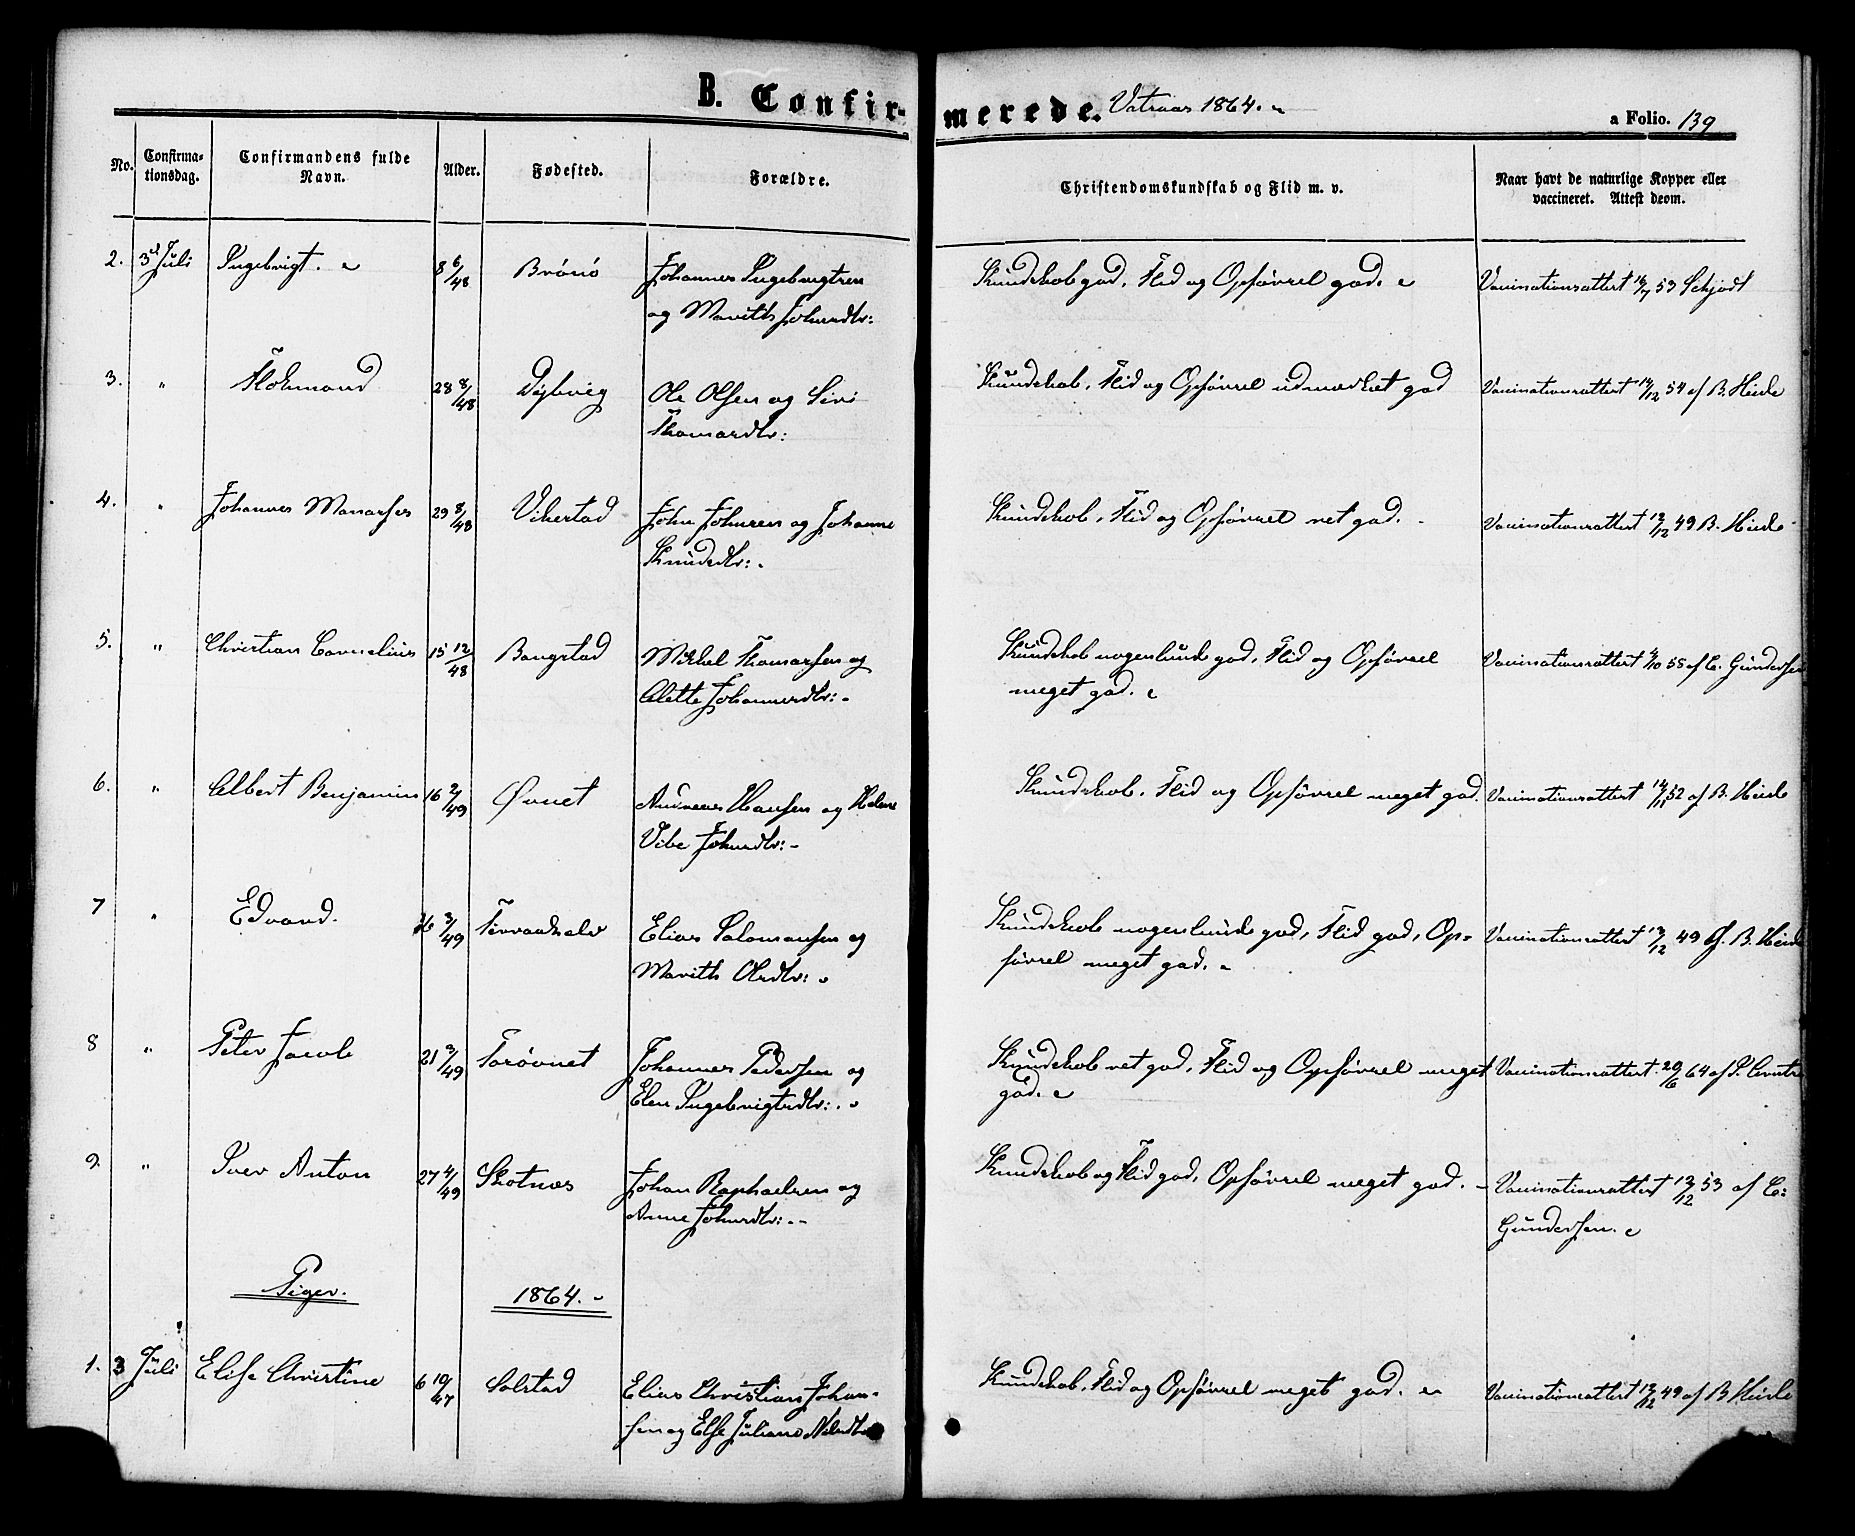 B. Confirmerede. Vatnaas 1864.
a Folio. 139
No. Confirmationsdag. Confirmandens fulde Navn. Alder. Fødested. Forældre. Christendomskundskab og Flid m. v. Naar havt de naturlige Kopper eller vaccineret. Attest deom.
2. 3d Juli Ingebrigt. 8 6/48 Brönö Johannes Ingebrigtsen Kundskab god, Flid og Opförsel god. Vaccinationsattest 53 Schjödt
og Marith Johnsdtr:
3. " Tlokmand 28 8/48 Dybvig Ole Olsen og Siri Kundskab, Flid og Opförsel udmærket god Vaccinationsattest 14/12 54 af B. Heide
Thomasdtr:
4. " Johannes Manasses 29 8/48 Vikestad John Johnsen og Johanne Kundskab, Flid og Opförsel ret god. Vaccinationsattest 12/12 49 B. Heide
Knudsdtr:
5. " Christian Cornelius 15 12/48 Bangstad Mikkel Thomassen og Kundskab nogenlunde god, Flid og Opförsel Vaccinationsattest 4/10 55 af C. Gundersen
Alette Johannesdtr: meget god.
6. " Albert Benjamin 16 2/49 Øvnet Andreas Hansen og Helene Kundskab, Flid og Opförsel meget god. Vaccinationsattest 14/11 52 af B. Heide
Vibe Johnsdtr:
7 " Edvard. 26 3/49 Elias Salomonsen og Kundskab nogenlunde god, Flid god, Op-
Vaccinationsattest 12/12 49 af B. Heide
Marith Olsdtr: försel meget god.
8 " Peter Jacob 21 3/49 Torövnet Johannes Pedersen og Kundskab ret god, Flid og Opförsel meget Vaccinationsattest 20/6 64 af
Elen Ingebrigtsdtr: god.
9. " Iver Anton 27 4/49 Skotnæs Johan Raphaelsen og Kundskab og Flid god, Opförsel meget god. Vaccinationsattest 12/12 53 af C:
Anne Johnsdtr: Gundersen.
Piger. 1864.
1. 3 Juli Elise Christine 6 10/47 Solstad Elias Christian Johan- Kundskab, Flid og Opförsel meget god. Vaccinationsattest 12/12 49 af B Heide
sen og Else Juliane